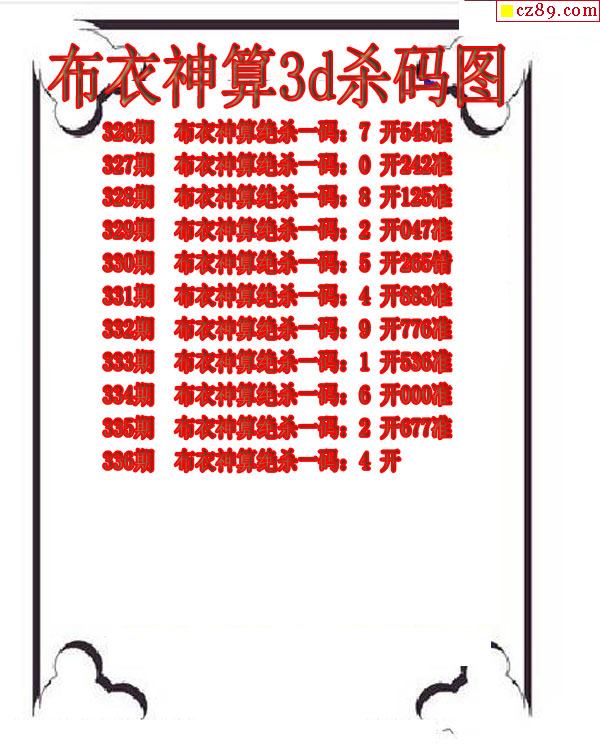 cz89.com
布衣神算3d杀码图
326期 布衣神算绝杀一码：7 开545准
327期 布衣神算绝杀一码：0 开242准
328期 布衣神算绝杀一码：8 开125准
329期 布衣神算绝杀一码：2 开047准
330期 布衣神算绝杀一码：5 开265错
331期 布衣神算绝杀一码：4 开893准
332期 布衣神算绝杀一码：9 开776准
333期 布衣神算绝杀一码：1 开536准
334期 布衣神算绝杀一码：6 开000准
335期 布衣神算绝杀一码：2 开677准
336期 布衣神算绝杀一码：4 开